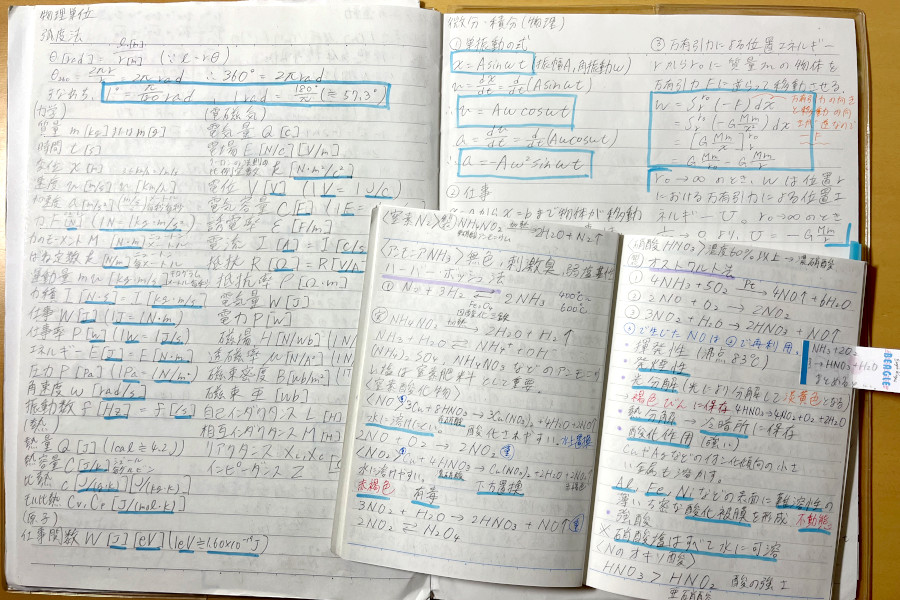 物理単位
弧度法
θ[rad] = l[m]/r[m] (∵ l = rθ)
= 2πr/r = 2π rad ∴ 360° = 2π rad
である。 1° = π/180 rad 1 rad = 180°/π (≒ 57.3°)
(力学)
質量 m [kg]
時間 t [s]
変位 x [m]
速度
力 F [N] (1N = 1kg・m/s²)
力のモーメント M [N・m]
ばね定数 k [N/m]
運動量 mv [kg・m/s]
力積 I [N・s] = I [kg・m/s]
仕事 W [J] (1J = 1N・m)
仕事率 P [W] (1W = 1J/s)
エネルギー E [J] = E [N・m]
圧力 P [Pa] (1Pa = 1N/m²)
角速度 w [rad/s]
振動数 f [Hz] = f [/s]
(熱)
熱量 Q [J] (1cal ≒ 4.2J)
熱容量 C [J/K]
比熱 c [J/(g・K)] [J/(kg・K)]
モル比熱 Cv, Cp [J/(mol・K)]
(原子)
仕事関数 W [J] [eV] (1eV ≒ 1.60×10⁻¹⁹J)
(電磁気)
電気量 Q [C]
電場 E [N/C] [V/m]
比例定数 k [N・m²/C²]
電位 V [V] (1V = 1J/C)
電気容量 C [F]
誘電率 ε [F/m]
電流 I [A] = I [C/s]
抵抗 R [Ω] = R [V/A]
抵抗率 ρ [Ω・m]
電気量 W [J]
電力 P [W]
磁場 H [N/Wb]
透磁率 μ [N/A²]
磁束密度 B [Wb/m²]
磁束 [Wb]
自己インダクタンス L [H]
相互インダクタンス M [H]
リアクタンス XL, Xc
インピーダンス Z
微分・積分(物理)
①単振動の式
x = A sin ωt (振幅A, 角振動ω)
v = dx/dt = d/dt (A sin ωt)
∴ v = Aω cos ωt
a = dv/dt = d/dt (Aω cos ωt)
∴ a = -Aω² sin ωt
②仕事
x=bまで物体が移動
③万有引力による位置エネルギー
rからr₀に質量mの物体を
万有引力Fに逆らって移動させる。
W = ∫ᵣʳ⁰ (-F) dx
= ∫ᵣʳ⁰ (-G Mm/x²) dx
= [G Mm/x]ʳ⁰ᵣ
= G Mm/r₀ - G Mm/r
万有引力の向き
と移動の向
r₀→∞のとき、Wは位置r
における万有引力による位置エ
ネルギーU。r₀→∞のとき
1/r₀→0より、U = -G Mm/r
(窒素N₂)
NH₄NO₂ 加熱→ 2H₂O + N₂↑
〈アンモニアNH₃〉無色, 刺激臭, 弱塩基性
ハーバー・ボッシュ法
① N₂ + 3H₂ ⇄ 2NH₃ 400℃~600℃
四酸化三鉄
NH₄NO₂ 加熱→ 2H₂O + N₂↑
NH₃ + H₂O ⇄ NH₄⁺ + OH⁻
(NH₄)₂SO₄, NH₄NO₃などのアンモニウ
ム塩は窒素肥料として重要。
〈窒素酸化物〉
〈NO〉 3Cu + 8HNO₃ → 3Cu(NO₃)₂ + 4H₂O + 2NO↑
水に溶けにくい。酸化されやすい。水上置換
2NO + O₂ → 2NO₂
〈NO₂〉 Cu + 4HNO₃ → Cu(NO₃)₂ + 2H₂O + 2NO₂↑
水に溶けやすい。 下方置換
赤褐色 有毒
3NO₂ + H₂O → 2HNO₃ + NO↑
2NO₂ ⇄ N₂O₄
〈硝酸HNO₃〉濃度60%以上→濃硝酸
オストワルト法
① 4NH₃ + 5O₂ Pt→ 4NO↑ + 6H₂O
② 2NO + O₂ → 2NO₂
③ 3NO₂ + H₂O → 2HNO₃ + NO↑
で生じたNOは②で再利用。
NH₃ + 2O₂
→ HNO₃ + H₂O
まとめる
・揮発性 (沸点83℃)
・光分解 (光により分解して淡黄色となる)
→褐色びんに保存 4HNO₃→4NO₂+O₂+2H₂O
・熱分解→冷暗所に保存
・酸化作用 (強い)
CuやAgなどのイオン化傾向の小さ
い金属も溶かす。
Al, Fe, Niなどの表面に難溶性の
薄い, 密な酸化被膜を形成 不動態
・強酸
※硝酸塩はすべて水に可溶
〈Nのオキソ酸〉
HNO₃ > HNO₂ 酸の強さ
亜硝酸
BEAGLE